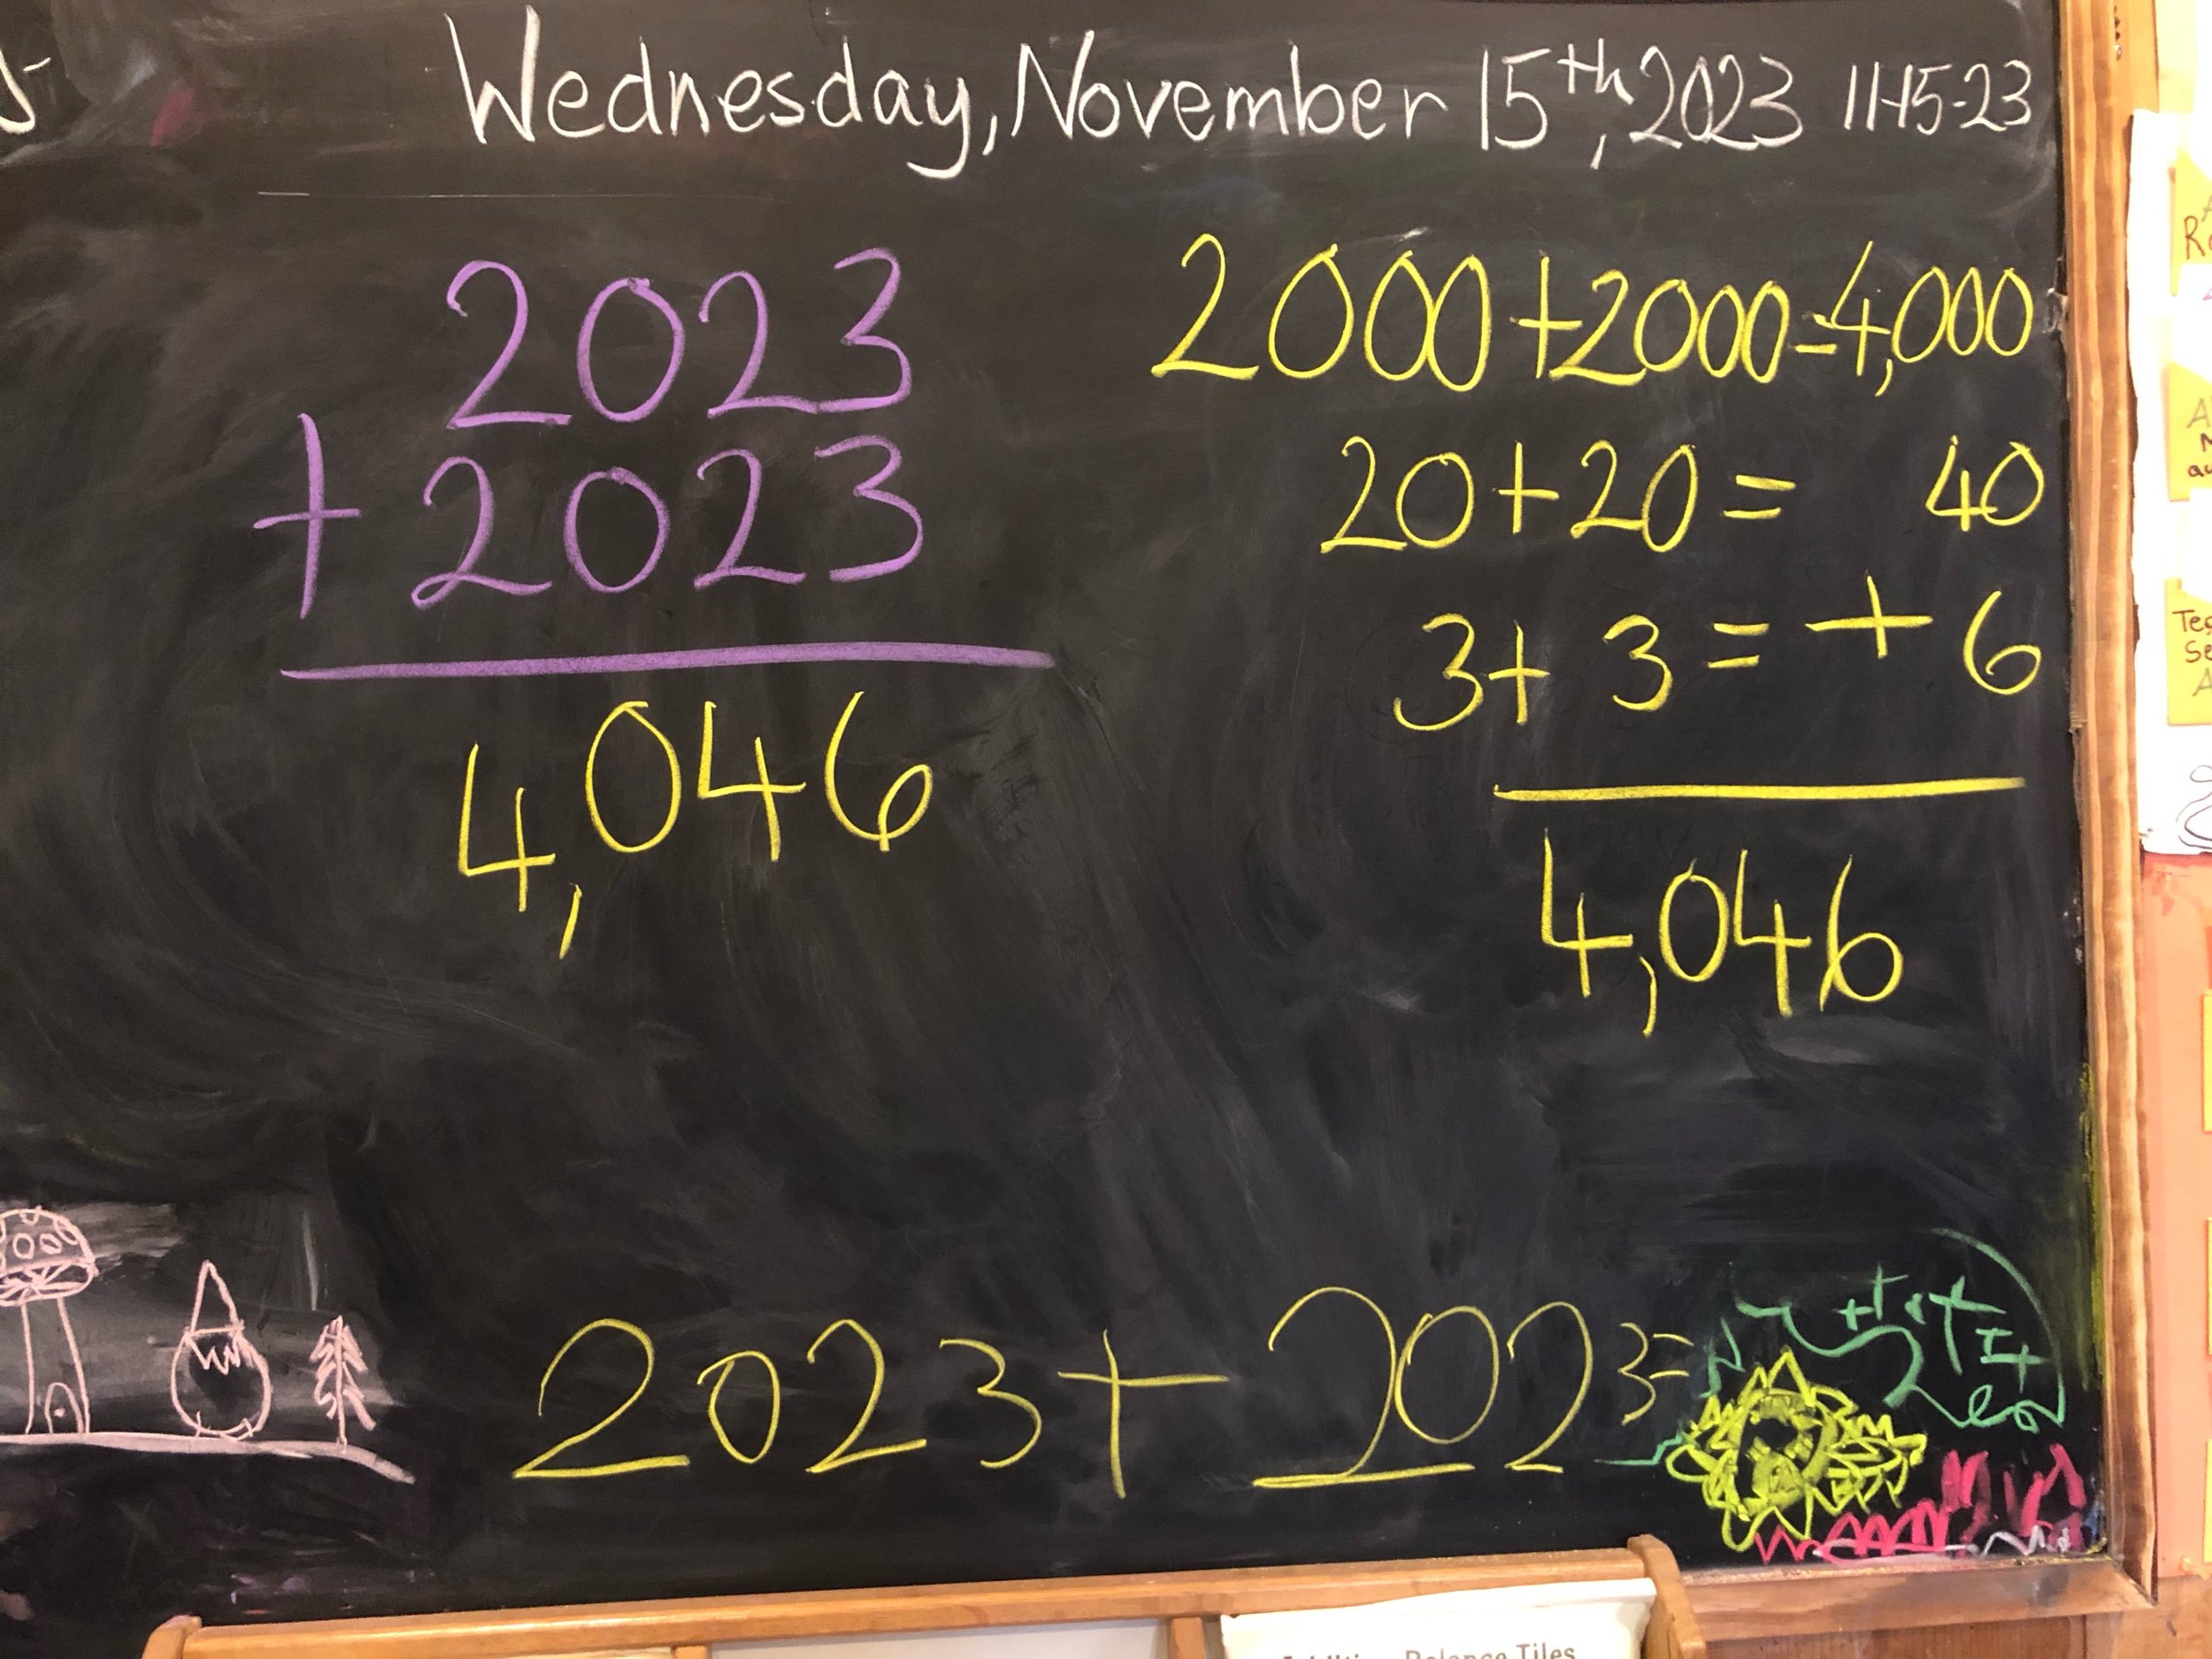 Wednesday, November 15th, 2023 11-15-23
2023
+ 2023
4,046
2000+2000=4,000
20+20= 40
3+3= +6
4,046
2023+2023=
Balance Tiles